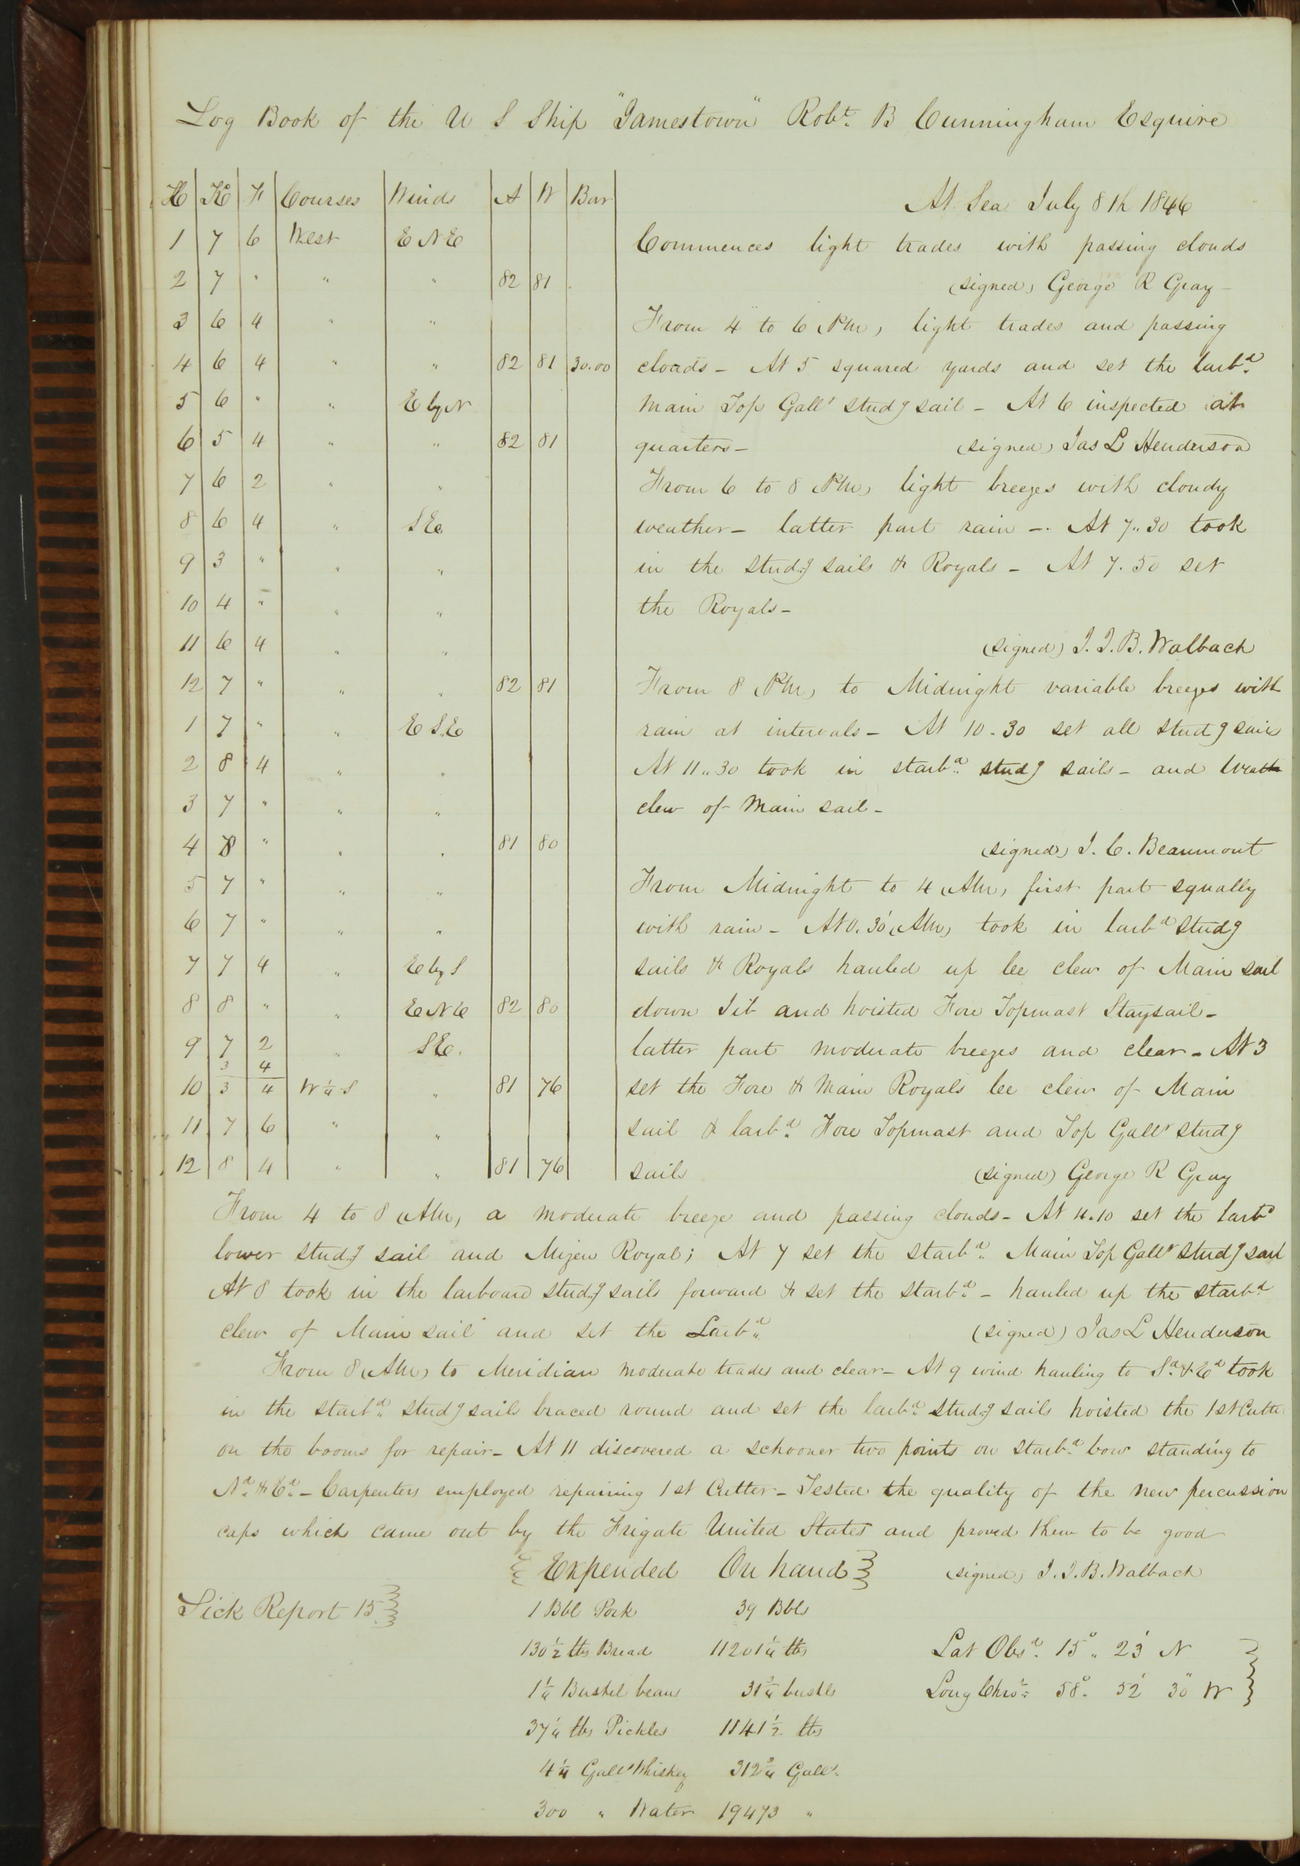 Log Book of the U S Ship "Jamestown" Robt. B Cunningham Esquire
H K F Courses Winds A W Bar At Sea July 8th 1846
1 7 6 West E N E Commences light trades with passing clouds
2 7 " " " 82 81 (signed) George R Gray
3 6 4 " " From 4 to 6 PM, light trades and passing
4 6 4 " " 82 81 30.00 clouds - At 5 squared yards and set the larbd.
5 6 " " E by N Main Top Gallt Studg sail - At 6 inspected at
6 5 4 " " 82 81 quarters - (signed) Jas L Henderson
7 6 2 " " From 6 to 8 PM, light breezes with cloudy
8 6 4 " S E weather - latter part rain - At 7.30 took
9 3 " " " in the studg sails & Royals - At 7.50 set
10 4 " " " the Royals -
11 6 4 " " (signed) J. J. B. Walbach
12 7 " " " 82 81 From 8 PM, to Midnight variable breezes with
1 7 " " E S E rain at intervals - At 10.30 set all studg sails
2 8 4 " " At 11.30 took in starbd. studg sails - and Weath
3 7 " " " clew of Main sail -
4 8 " " " 81 80 (signed) J. C. Beaumont
5 7 " " " From Midnight to 4 AM, first part squally
6 7 " " " with rain - At 0.30 AM, took in larbd studg
7 7 4 " E by S sails & Royals hauled up lee clew of Main sail
8 8 " " E N E 82 80 down Jib and hoisted Fore Topmast Staysail -
9 7 2 " S E. latter part moderate breezes and clear - At 3
3 4
10 3 4 W ¼ S " 81 76 set the Fore & Main Royals lee clew of Main
11 7 6 " " sail & larbd. Fore Topmast and Top Gallt studg
12 8 4 " " 81 76 sails (signed) George R Gray
From 4 to 8 AM, a moderate breeze and passing clouds - At 4.10 set the larbd
lower studg sail and Mizen Royal; At 7 set the starbd. Main Top Gallt studg sail
At 8 took in the larboard studg sails forward & set the starbd. - hauled up the starbd
clew of Main sail and set the Larbd. (signed) Jas L Henderson
From 8 AM, to Meridian moderate trades and clear - At 9 wind hauling to Sd. & Ed took
in the starbd. studg sails braced round and set the larbd. studg sails hoisted the 1st Cutter
on the booms for repair - At 11 discovered a schooner two points on starbd bow standing to
Nd. & Ed. - Carpenters employed repairing 1st Cutter - Tested the quality of the new percussion
caps which came out by the Frigate United States and proved them to be good
Expended On hand (signed) J. J. B. Walbach
Sick Report 15
1 Bbl Pork 39 Bbls
130½ lbs Bread 11201¼ lbs Lat Obsd. 15° 23' N
1¼ Bushel beans 31¾ bushls Long Chro. 58° 52' 30" W
37¼ lbs Pickles 1141½ lbs
4¼ Galls Whiskey 312¾ Galls.
300 " Water 19473 "